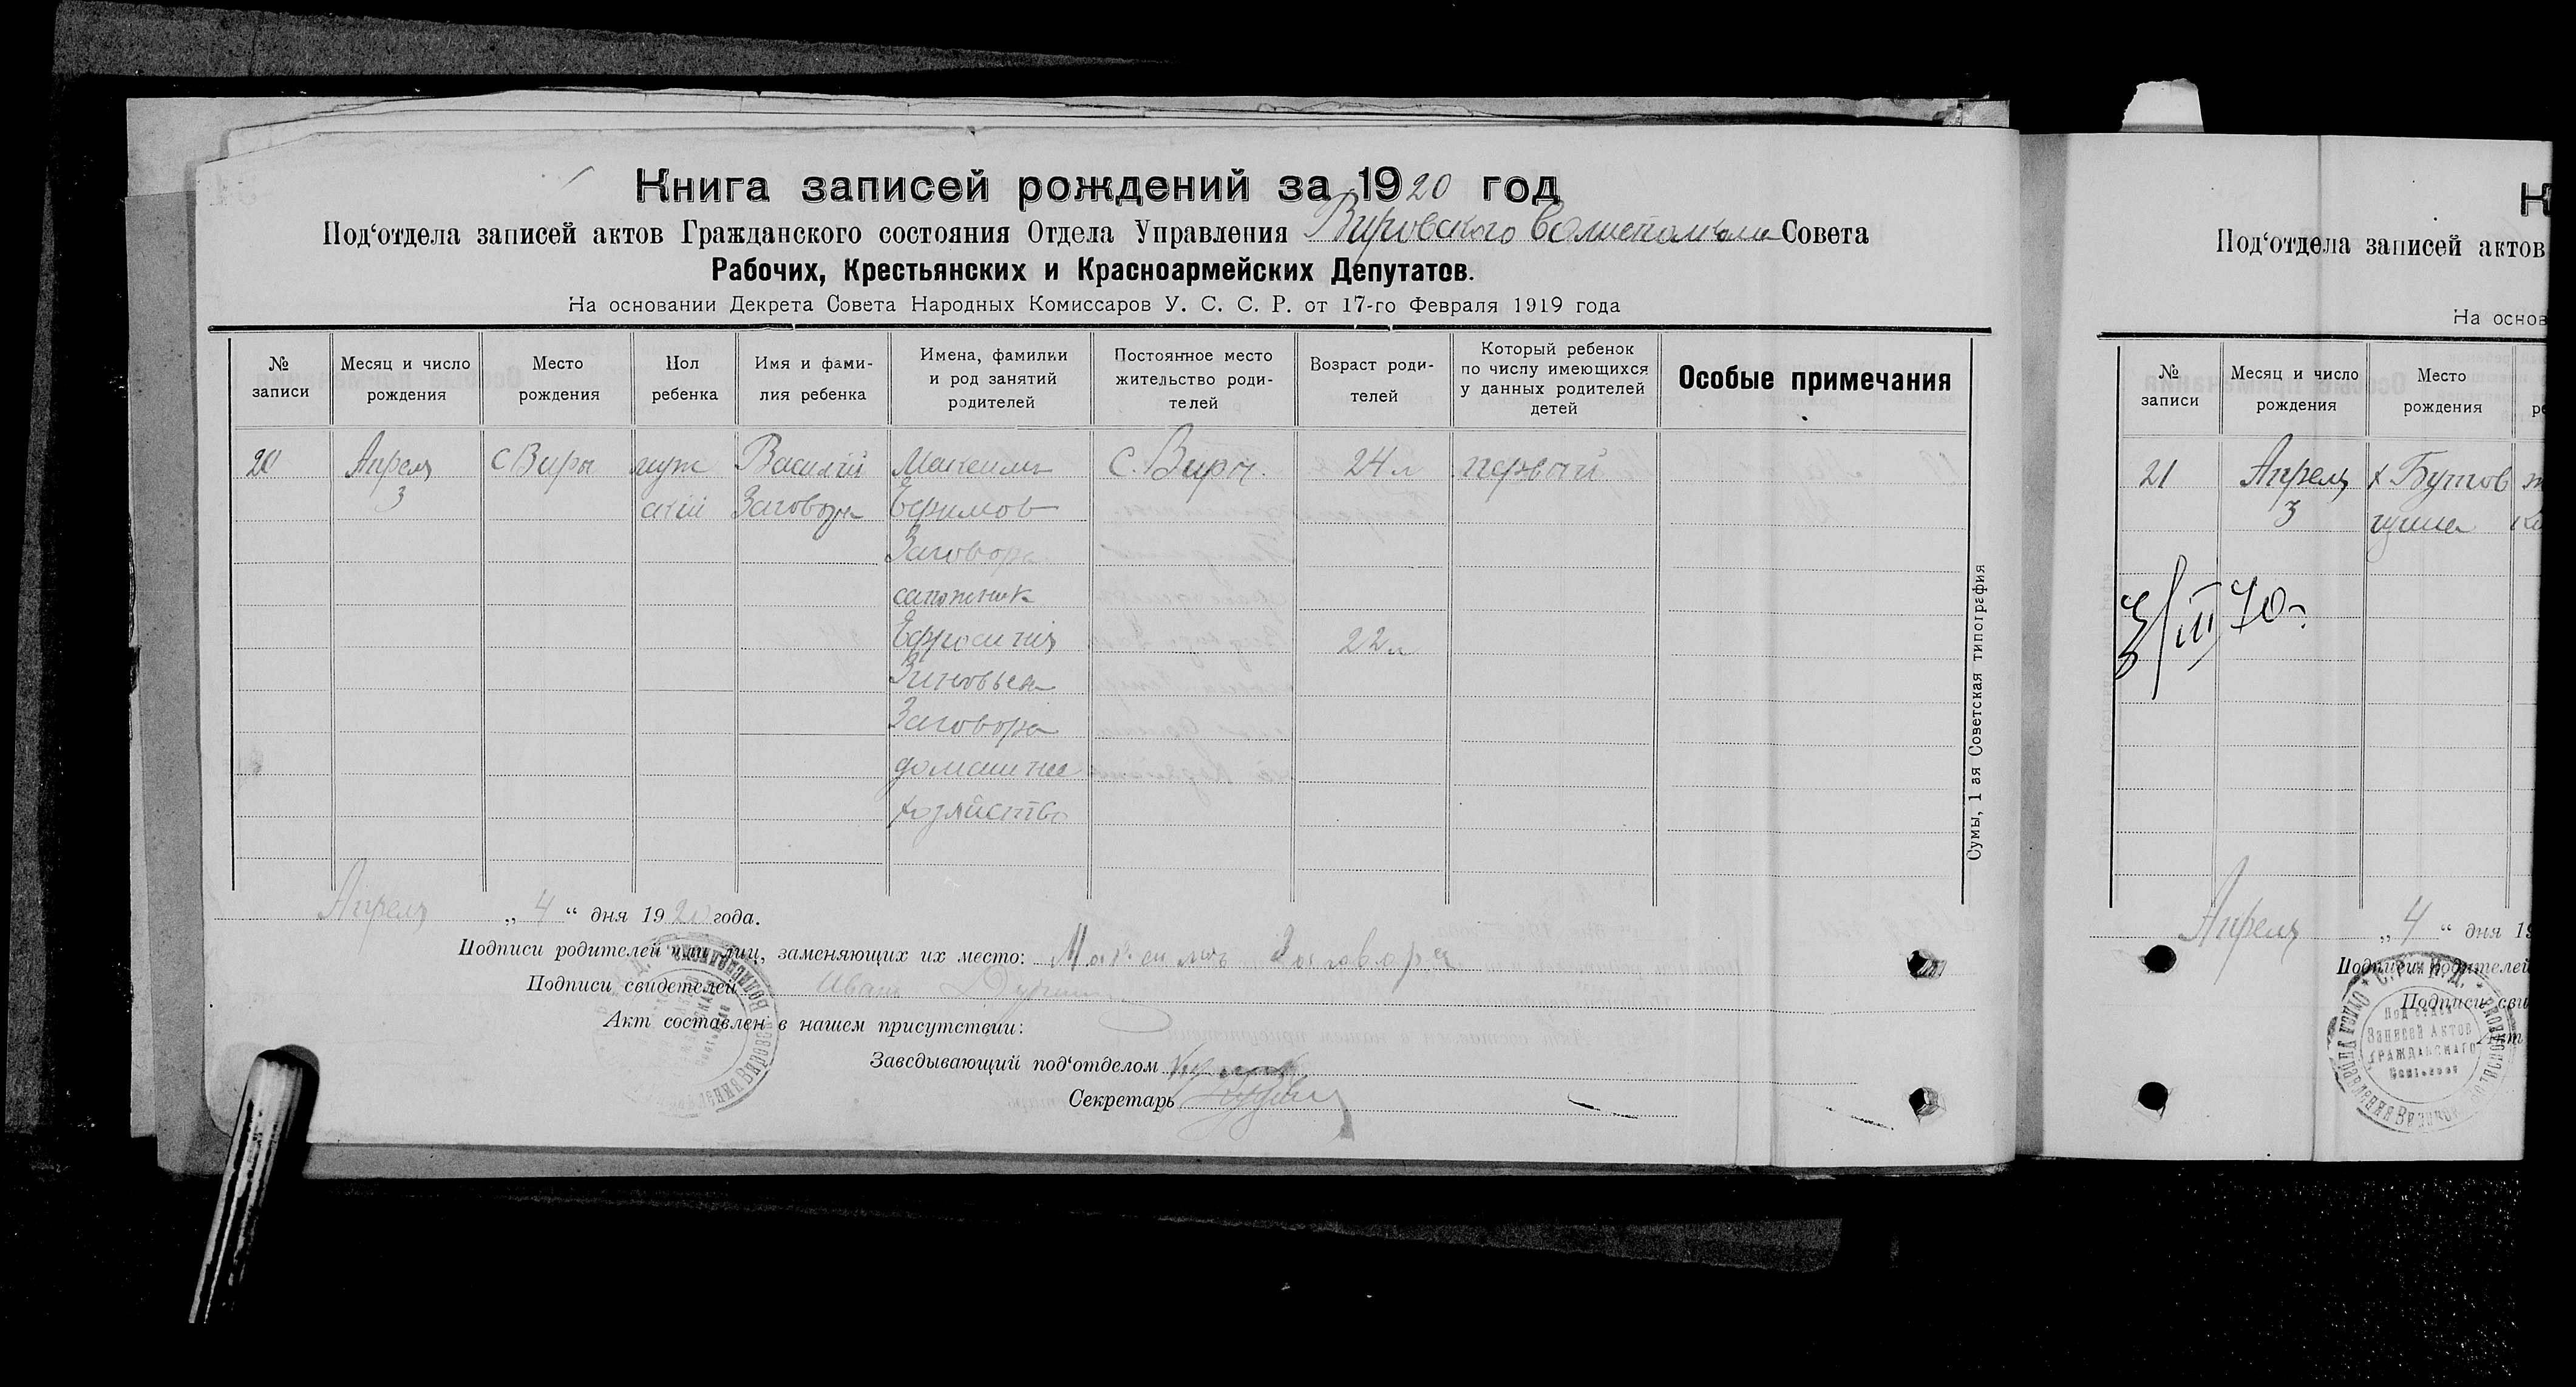 Книга записей рождений за 1920 год
Под‘отдела записей актов Гражданского состояния Отдела Управления Вировского Волисполкома Совета
Рабочих, Крестьянских и Красноармейских Депутатов.
На основании Декрета Совета Народных Комиссаров У. С. С. Р. от 17-го Февраля 1919 года
№ записи
Месяц и число рождения
Место рождения
Пол ребенка
Имя и фами- лия ребенка
Имена, фамилии и род занятий родителей
Постоянное место жительство роди- телей
Возраст роди- телей
Который ребенок по числу имеющихся у данных родителей детей
Особые примечания
20 Апреля с Виры муж Василий Максимъ с. Виры. 24 л первый
3 ский Заговора Ефимов
Заговора
сапожник
Ефросиния 22 л
Зиновьева
Заговора
домашнее
хозяйство
Апреля „ 4 “ дня 1920 года.
Подписи родителей или лиц, заменяющих их место: Максимъ Заговора
Подписи свидетелей Иванъ
Акт составлен в нашем присутствии:
Заведывающий под‘отделом
Секретарь
Сумы, 1 ая Советская типография
К
Под‘отдела записей актов
На основ
№ записи
Месяц и число рождения
Место рождения
ре
21 Апреля х Бутов
3
3/III 70г.
Апреля „ 4 “ дня 19
Подписи родителей
Подписи сви
Акт
Под отдел
Записей Актов
Гражданскаго